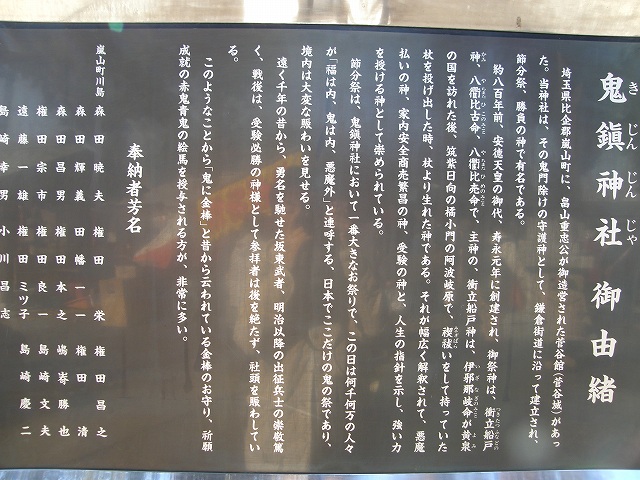 鬼鎭神社 御由緒
きじんじんじゃ
埼玉県比企郡嵐山町に、畠山重忠公が御造営された菅谷館(菅谷城)があっ
た。当神社は、その鬼門除けの守護神として、鎌倉街道に沿って建立され、
節分祭、勝負の神で有名である。
約八百年前、安徳天皇の御代、寿永元年に創建され、御祭神は、衝立船戸
神、八衢比古命、八衢比売命で、主神の、衝立船戸神は、伊邪那岐命が黄泉
の国を訪れた後、筑紫日向の橘小門の阿波岐原で、禊祓いをして持っていた
杖を投げ出した時、杖より生れた神である。それが幅広く解釈されて、悪魔
払いの神、家内安全商売繁昌の神、受験の神と、人生の指針を示し、強い力
を授ける神として崇められている。
節分祭は、鬼鎭神社において一番大きなお祭りで、この日は何千何万の人々
が「福は内、鬼は内、悪魔外」と連呼する、日本でここだけの鬼の祭であり、
境内は大変な賑わいを見せる。
遠く千年の昔から、勇名を馳せた坂東武者、明治以降の出征兵士の崇敬篤
く、戦後は、受験必勝の神様として参拝者は後を絶たず、社頭を賑わしてい
る。
このようなことから「鬼に金棒」と昔から云われている金棒のお守り、祈願
成就の赤鬼青鬼の絵馬を授与される方が、非常に多い。
奉納者芳名
嵐山町川島 森田暁夫 権田 栄 権田昌之
森田輝義 田幡一一 権田 清
森田昌男 権田本之 嶋嵜勝也
権田宗市 権田良一 島﨑文夫
遠藤一雄 権田ミツ子 島﨑慶二
島﨑幸男 小川昌志